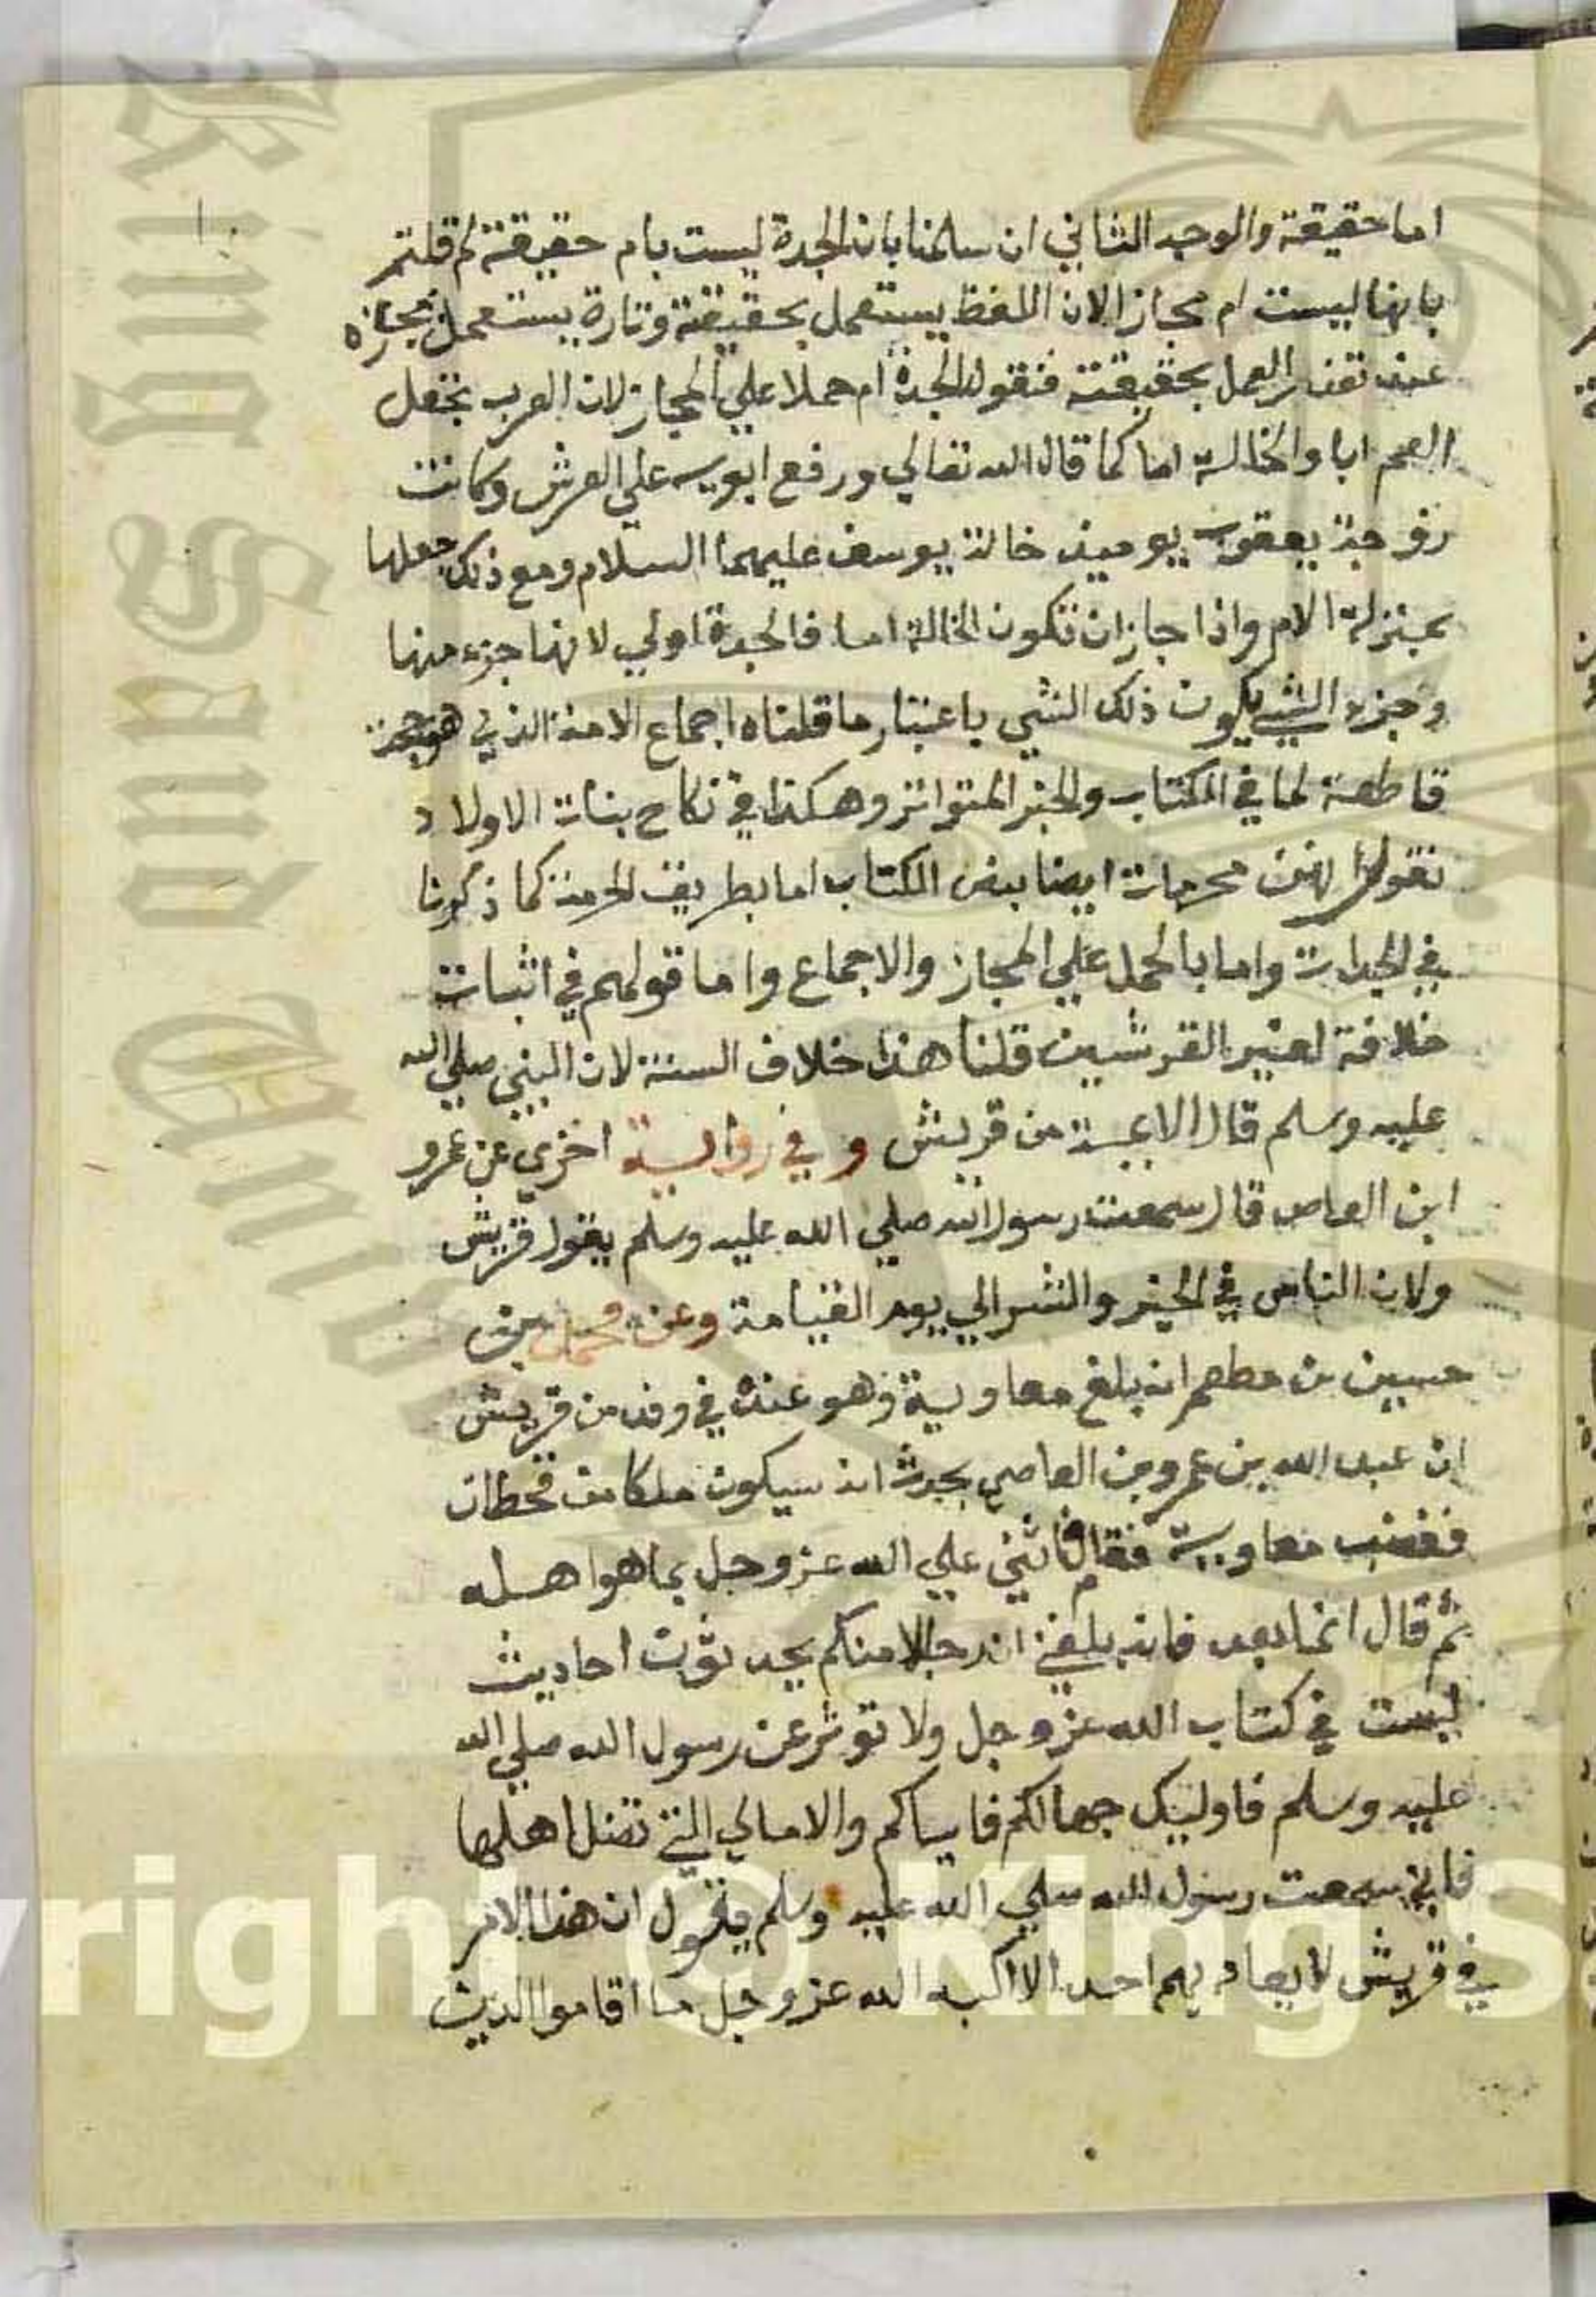 اما حقيقة والوجه الثاني ان سلمنا بان الجدة ليست بام حقيقة لم قلتم
بانها ليست ام مجاز الان اللفظ يستعمل بحقيقته وتارة يستعمل بمجازه
عند تعذر العمل بحقيقته فنقول الجدة ام حملا علي المجاز لان العرب تجعل
العم ابا والخالة اما كما قال الله تعالي ورفع ابويه علي العرش وكانت
زوجة يعقوب يوميذ خالة يوسف عليهما السلام ومع ذلك جعلها
بمنزلة الام واذا جاز ان تكون الخالة اما فالجدة اولي لانها جزء منها
وجزء الشي يكون ذلك الشي باعتبار ما قلناه اجماع الامة الذي هو حجة
قاطعة لما في الكتاب والخبر المتواتر وهكذا في نكاح بنات الاولاد
نقول انهن محرمات ايضا بنص الكتاب اما بطريق الحرمة كما ذكرنا
في الجدات واما بالحمل علي المجاز والاجماع واما قولهم في اثبات
خلافة لغير القرشيين قلنا هذا خلاف السنة لان النبي صلي الله
عليه وسلم قال الايمة من قريش وفي رواية اخري عن عمرو
ابن العاص قال سمعت رسول الله صلي الله عليه وسلم يقول قريش
ولاة الناس في الخير والشر الي يوم القيامة وعن محمد بن
حسين بن مطعم انه بلغ معاوية وهو عنده في وفد من قريش
ان عبد الله بن عمرو بن العاصي يحدث انه سيكون ملكا من قحطان
فغضب معاوية فقام فاثني علي الله عز وجل بما هو اهله
ثم قال اما بعد فانه بلغني ان رجالا منكم يحدثون احاديث
ليست في كتاب الله عز وجل ولا توثر عن رسول الله صلي الله
عليه وسلم فاوليك جهالكم فاياكم والاماني التي تضل اهلها
فاني سمعت رسول الله صلي الله عليه وسلم يقول ان هذا الامر
في قريش لا يعاديهم احد الا اكبه الله عز وجل ما اقاموا الدين
King Saud Univ
yright © King S